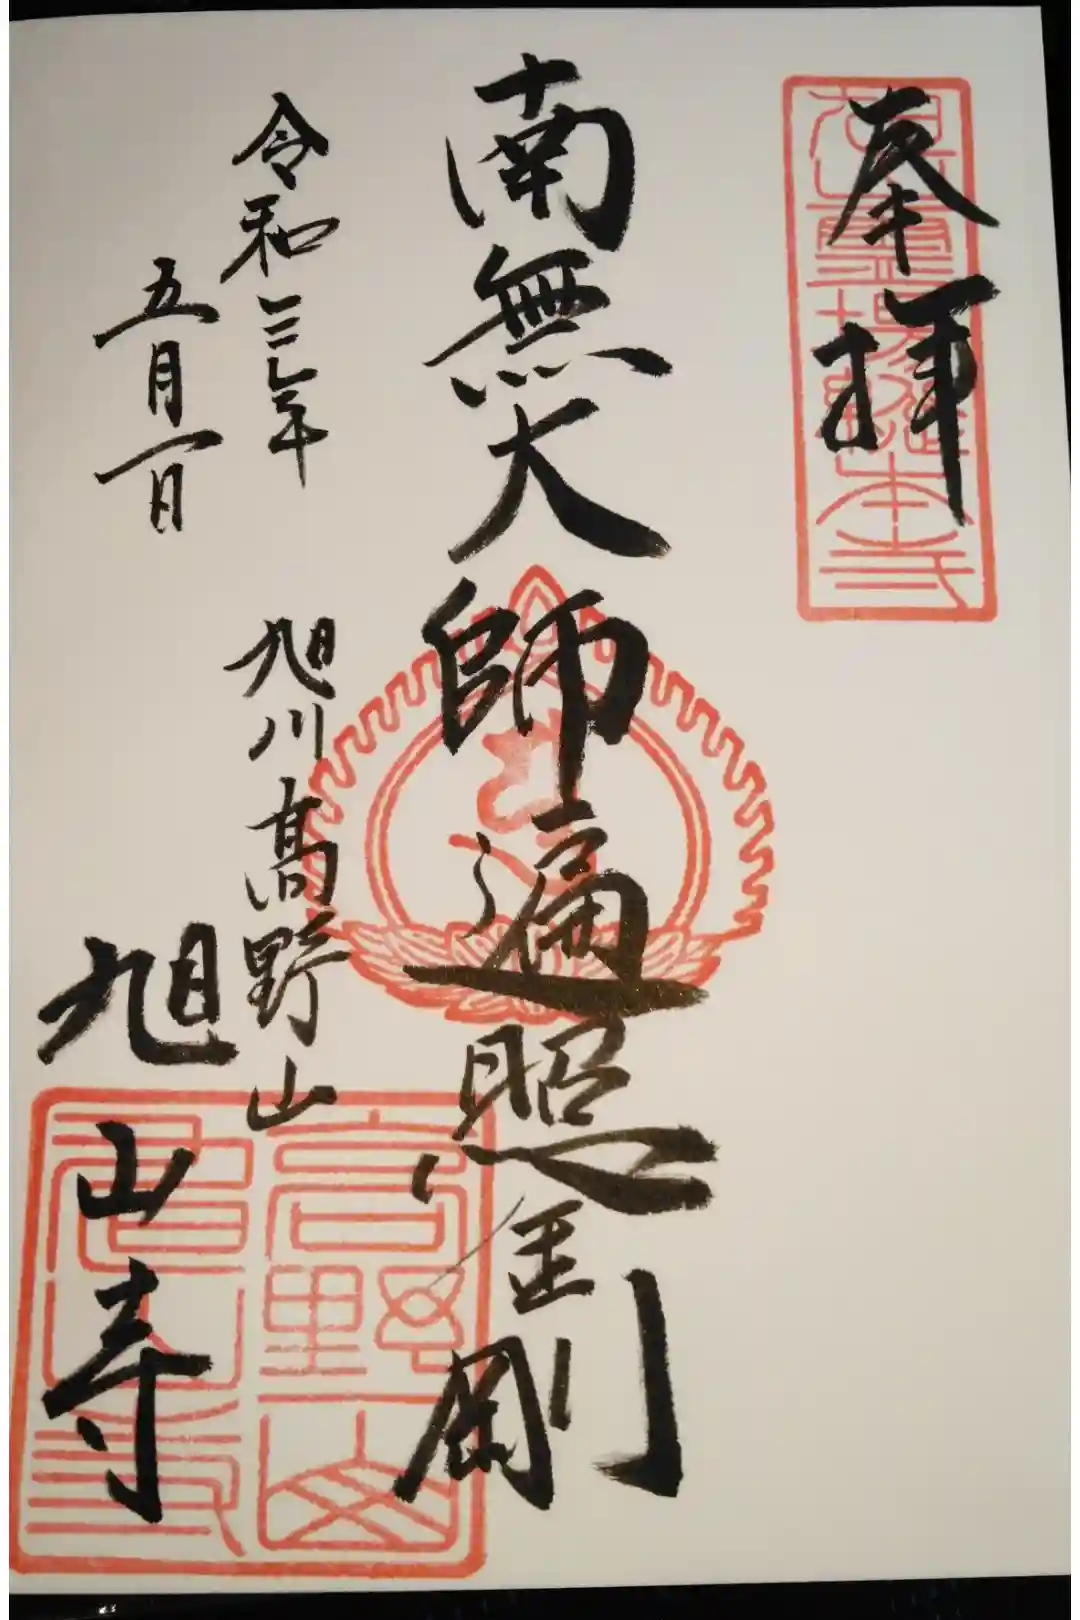 奉拝
南無大師遍照金剛
令和三年
五月一日
旭川高野山
旭山寺